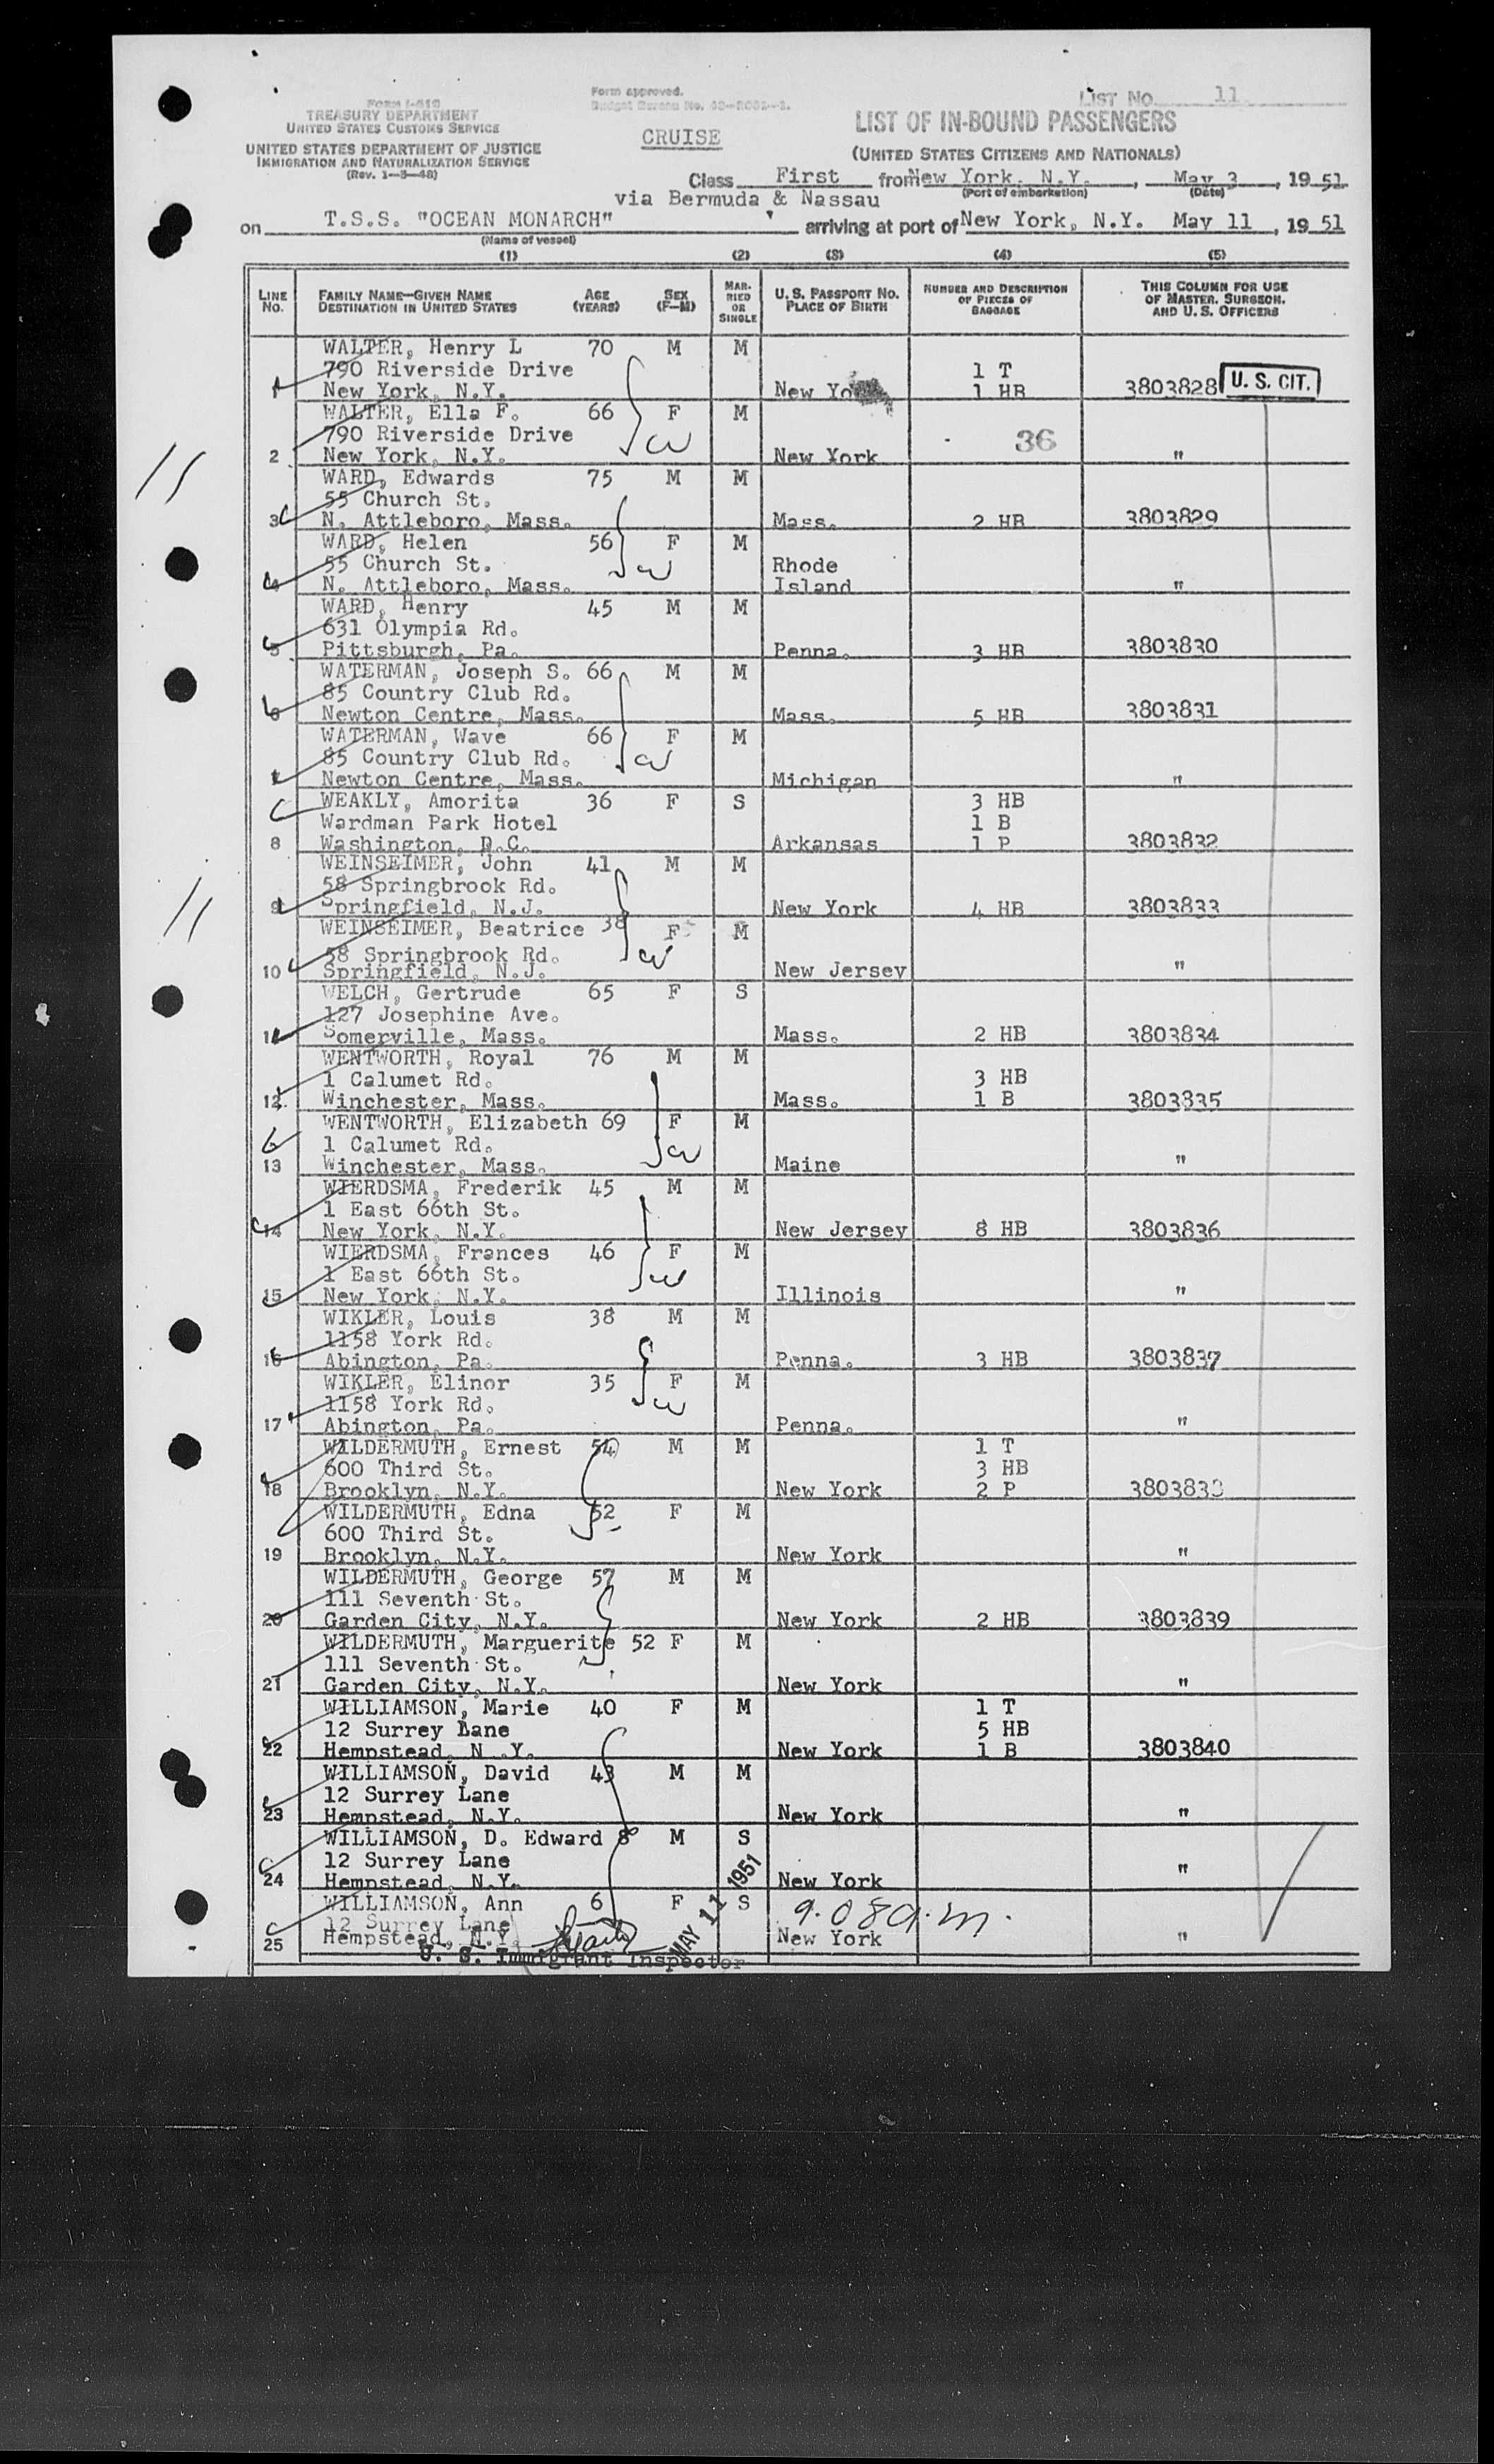 LIST NO. 11
Form I-418
TREASURY DEPARTMENT
UNITED STATES CUSTOMS SERVICE
UNITED STATES DEPARTMENT OF JUSTICE
IMMIGRATION AND NATURALIZATION SERVICE
(Rev. 1-5-48)
Form approved.
Budget Bureau No.
CRUISE
LIST OF IN-BOUND PASSENGERS
(UNITED STATES CITIZENS AND NATIONALS)
Class First from New York, N.Y. , May 3 , 19 51
via Bermuda & Nassau (Port of embarkation) (Date)
on T.S.S. "OCEAN MONARCH" , arriving at port of New York, N.Y. May 11 , 19 51
(Name of vessel)
(1) (2) (3) (4) (5)
LINE NO. FAMILY NAME—GIVEN NAME DESTINATION IN UNITED STATES AGE (YEARS) SEX (F—M) MARRIED OR SINGLE U. S. PASSPORT NO. PLACE OF BIRTH NUMBER AND DESCRIPTION OF PIECES OF BAGGAGE THIS COLUMN FOR USE OF MASTER, SURGEON, AND U. S. OFFICERS
WALTER, Henry L 70 M M
790 Riverside Drive 1 T
1 New York, N.Y. New Yo 1 HB 3803828 U. S. CIT.
WALTER, Ella F. 66 F M
790 Riverside Drive 36
2 New York, N.Y. New York "
WARD, Edwards 75 M M
55 Church St.
3 N. Attleboro, Mass. Mass. 2 HB 3803829
WARD, Helen 56 F M
55 Church St. Rhode
4 N. Attleboro, Mass. Island "
WARD, Henry 45 M M
631 Olympia Rd.
5 Pittsburgh, Pa. Penna. 3 HB 3803830
WATERMAN, Joseph S. 66 M M
85 Country Club Rd.
6 Newton Centre, Mass. Mass. 5 HB 3803831
WATERMAN, Wave 66 F M
85 Country Club Rd.
7 Newton Centre, Mass. Michigan "
WEAKLY, Amorita 36 F S 3 HB
Wardman Park Hotel 1 B
8 Washington, D.C. Arkansas 1 P 3803832
WEINSEIMER, John 41 M M
58 Springbrook Rd.
9 Springfield, N.J. New York 4 HB 3803833
WEINSEIMER, Beatrice 38 F M
58 Springbrook Rd.
10 Springfield, N.J. New Jersey "
WELCH, Gertrude 65 F S
127 Josephine Ave.
11 Somerville, Mass. Mass. 2 HB 3803834
WENTWORTH, Royal 76 M M
1 Calumet Rd. 3 HB
12 Winchester, Mass. Mass. 1 B 3803835
WENTWORTH, Elizabeth 69 F M
1 Calumet Rd.
13 Winchester, Mass. Maine "
WIERDSMA, Frederik 45 M M
1 East 66th St.
14 New York, N.Y. New Jersey 8 HB 3803836
WIERDSMA, Frances 46 F M
1 East 66th St.
15 New York, N.Y. Illinois "
WIKLER, Louis 38 M M
1158 York Rd.
16 Abington, Pa. Penna. 3 HB 3803837
WIKLER, Elinor 35 F M
1158 York Rd.
17 Abington, Pa. Penna. "
WILDERMUTH, Ernest 54 M M 1 T
600 Third St. 3 HB
18 Brooklyn, N.Y. New York 2 P 3803838
WILDERMUTH, Edna 52 F M
600 Third St.
19 Brooklyn, N.Y. New York "
WILDERMUTH, George 57 M M
111 Seventh St.
20 Garden City, N.Y. New York 2 HB 3803839
WILDERMUTH, Marguerite 52 F M
111 Seventh St.
21 Garden City, N.Y. New York "
WILLIAMSON, Marie 40 F M 1 T
12 Surrey Lane 5 HB
22 Hempstead, N.Y. New York 1 B 3803840
WILLIAMSON, David 43 M M
12 Surrey Lane
23 Hempstead, N.Y. New York "
WILLIAMSON, D. Edward 8 M S
12 Surrey Lane
24 Hempstead, N.Y. New York "
WILLIAMSON, Ann 6 F S 9.08 a.m.
12 Surrey Lane
25 Hempstead, N.Y. New York "
MAY 11 1951
U. S. Immigrant Inspector